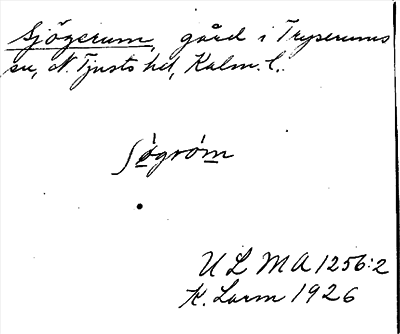 Sjögerum, gård i Tryserums
sn, N. Tjusts hd, Kalm. l.
ʃö́gróm
ULMA 1256:2
K. Larm 1926